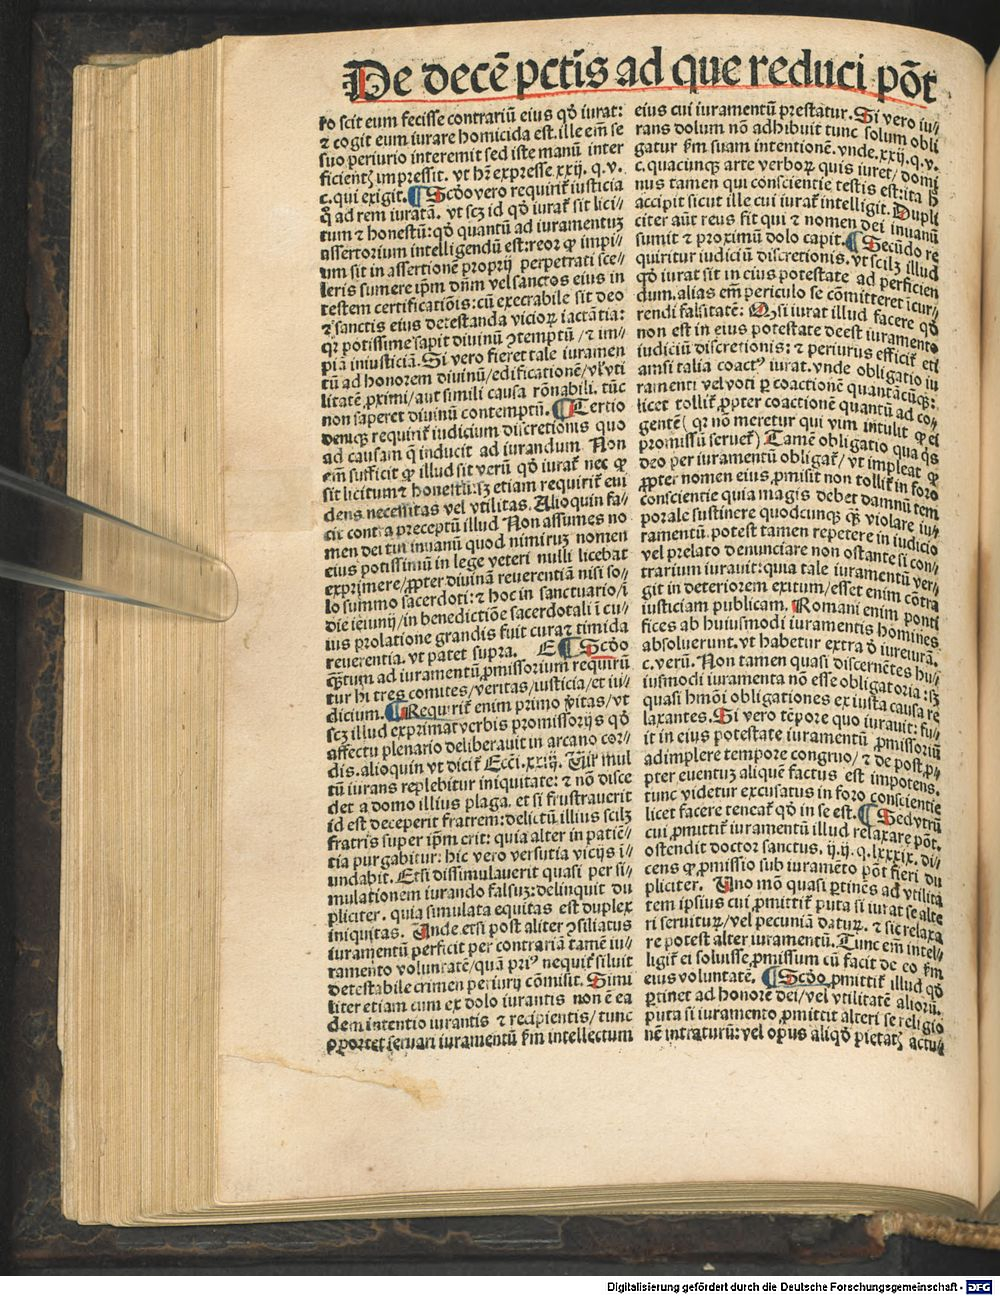 De decē pctīs ad que reduci pōt
ro scit eum fecisse contrariū eius qđ iurat:
⁊ cogit eum iurare homicida est. ille em̄ se
suo periurio interemit sed iste manū inter
ficientꝫ impressit. vt hr̄ expresse. xxij. q. v.
c. qui exigit. ¶ Scđo vero requirit᷑ iusticia
q̄ ad rem iuratā. vt scꝫ id qđ iurat᷑ sit lici/
tum ⁊ honestū: qđ quantū ad iuramentuꝫ
assertorium intelligendū est: reor ꝙ impi//
um sit in assertionē proprij perpetrati sce//
leris sumere ip̄m dn̄m vel sanctos eius in
testem certificatiōis: cū execrabile sit deo
⁊ sanctis eius detestanda vicioꝝ iactātia:
qꝛ potissime sapit diuinū ꝯtemptū / ⁊ im//
piā iniusticiā. Si vero fieret tale iuramen
tū ad honorem diuinū / edificationē / vl̓ vti
litatē ꝓximi / aut simili causa rōnabili. tūc
non saperet diuinū contemptū. ¶ Tertio
deniqꝫ requirit᷑ iudicium discretionis quo
ad causam q̄ inducit ad iurandum. Non
em̄ sufficit ꝙ illud sit verū qđ iurat᷑ nec ꝙ
sit licitum ⁊ honestū: sꝫ etiam requirit᷑ eui
dens necessitas vel vtilitas. Alioquin fa//
cit contra preceptū illud Non assumes no
men dei tui inuanū quod nimiruꝫ nomen
eius potissimū in lege veteri nulli licebat
exprimere / ꝓpter diuinā reuerentiā nisi so//
lo summo sacerdoti: ⁊ hoc in sanctuario / ī
die ieiunij / in benedictiōe sacerdotali ī cu//
ius prolatione grandis fuit cura ⁊ timida
reuerentia. vt patet supra. E ¶ Scđo
qꝫtum ad iuramentū ꝓmissorium requirū
tur hi tres comites / veritas / iusticia / et iu//
dicium. ¶ Requirit᷑ enim primo v̓itas / vt
scꝫ illud exprimat verbis promissorijs qđ
affectu plenario deliberauit in arcano cor//
dis. alioquin vt dicit᷑ Ecci. xxiij. Vir mul
tū iurans replebitur iniquitate: ⁊ nō disce
det a domo illius plaga. et si frustrauerit
id est deceperit fratrem: delictū illius scilꝫ
fratris super ip̄m erit: quia alter in patiē//
tia purgabitur: hic vero versutia vicijs ī//
undabit. Etsi dissimulauerit quasi per si//
mulationem iurando falsuꝫ: delinquit du
pliciter. quia simulata equitas est duplex
iniquitas. Unde etsi post aliter ꝯsiliatus
iuramentū perficit per contrariā tamē iu//
ramēto voluntatē / quā priꝰ nequit᷑ siluit
detestabile crimen periurij cōmisit. Simi
liter etiam cum ex dolo iurantis non ē ea
dem intentio iurantis ⁊ recipientis / tunc
oportet seruari iuramentū ẜm intellectum
eius cui iuramentū prestatur. Si vero iu//
rans dolum nō adhibuit tunc solum obli
gatur ẜm suam intentionē. vnde. xxij. q. v.
c. quacunqꝫ arte verboꝝ quis iuret / domi
nus tamen qui conscientie testis est: ita h̓
accipit sicut ille cui iurat᷑ intelligit. Dupli
citer aūt reus fit qui ⁊ nomen dei inuanū
sumit ⁊ proximū dolo capit. ¶ Secūdo re
quiritur iudiciū discretionis. vt scilꝫ illud
qđ iurat sit in eius potestate ad perficien
dum. alias em̄ periculo se cōmitteret īcur//
rendi falsitatē: Qsi iurat illud facere qđ
non est in eius potestate deest iuramento
iudiciū discretionis: ⁊ periurus efficit᷑ eti
amsi talia coactꝰ iurat. vnde obligatio iu
ramenti vel voti ꝑ coactionē quantācūqꝫ:
licet tollit᷑ ꝓpter coactionē quantū ad co//
gentē (qꝛ nō meretur qui vim intulit ꝙ ei
promissū seruet᷑) Tamē obligatio qua q̓s
deo per iuramentū obligat᷑ / vt impleat ꝙ
ꝓpter nomen eius ꝓmisit non tollit᷑ in foro
conscientie quia magis debet damnū tem
porale sustinere quodcunqꝫ qꝫ violare iu//
ramentū. potest tamen repetere in iudicio
vel prelato denunciare non ostante si con//
trarium iurauit: quia tale iuramentū ver//
git in deteriorem exitum / esset enim cōtra
iusticiam publicam. Romani enim ponti
fices ab huiusmodi iuramentis homines
absoluerunt. vt habetur extra đ iureiurā.
c. verū. Non tamen quasi discernētes hu//
iusmodi iuramenta nō esse obligatoria: sꝫ
quasi hmōi obligationes ex iusta causa re
laxantes. Si vero tēpore quo iurauit: fu//
it in eius potestate iuramentū ꝓmissoriū
adimplere tempore congruo / ⁊ de post ꝓ//
pter euentuꝫ aliquē factus est impotens.
tunc videtur excusatus in foro conscientie
licet facere teneat᷑ qđ in se est. ¶ Sed vtrū
cui ꝓmittit᷑ iuramentū illud relaxare pōt.
ostendit doctor sanctus. ij. ij. q. lxxxix. di//
cens ꝙ ꝓmissio sub iuramēto pōt fieri du
pliciter. Uno mō quasi ꝑtinēs ad vtilitā
tem ipsius cui ꝓmittit᷑ puta si iurat se alte
ri seruituꝝ / vel pecuniā datuꝝ. ⁊ sic relaxa
re potest alter iuramentū. Tunc em̄ intel//
ligit᷑ ei soluisse ꝓmissum cū facit de eo ẜm
eius voluntatē. ¶ Scđo ꝓmittit᷑ illud qđ
ꝑtinet ad honorē dei / vel vtilitatē alioꝝ.
puta si iuramento ꝓmittit alteri se religio
nē intraturū: vel opus aliqđ pietatꝫ actu//
Digitalisierung gefördert durch die Deutsche Forschungsgemeinschaft - DFG